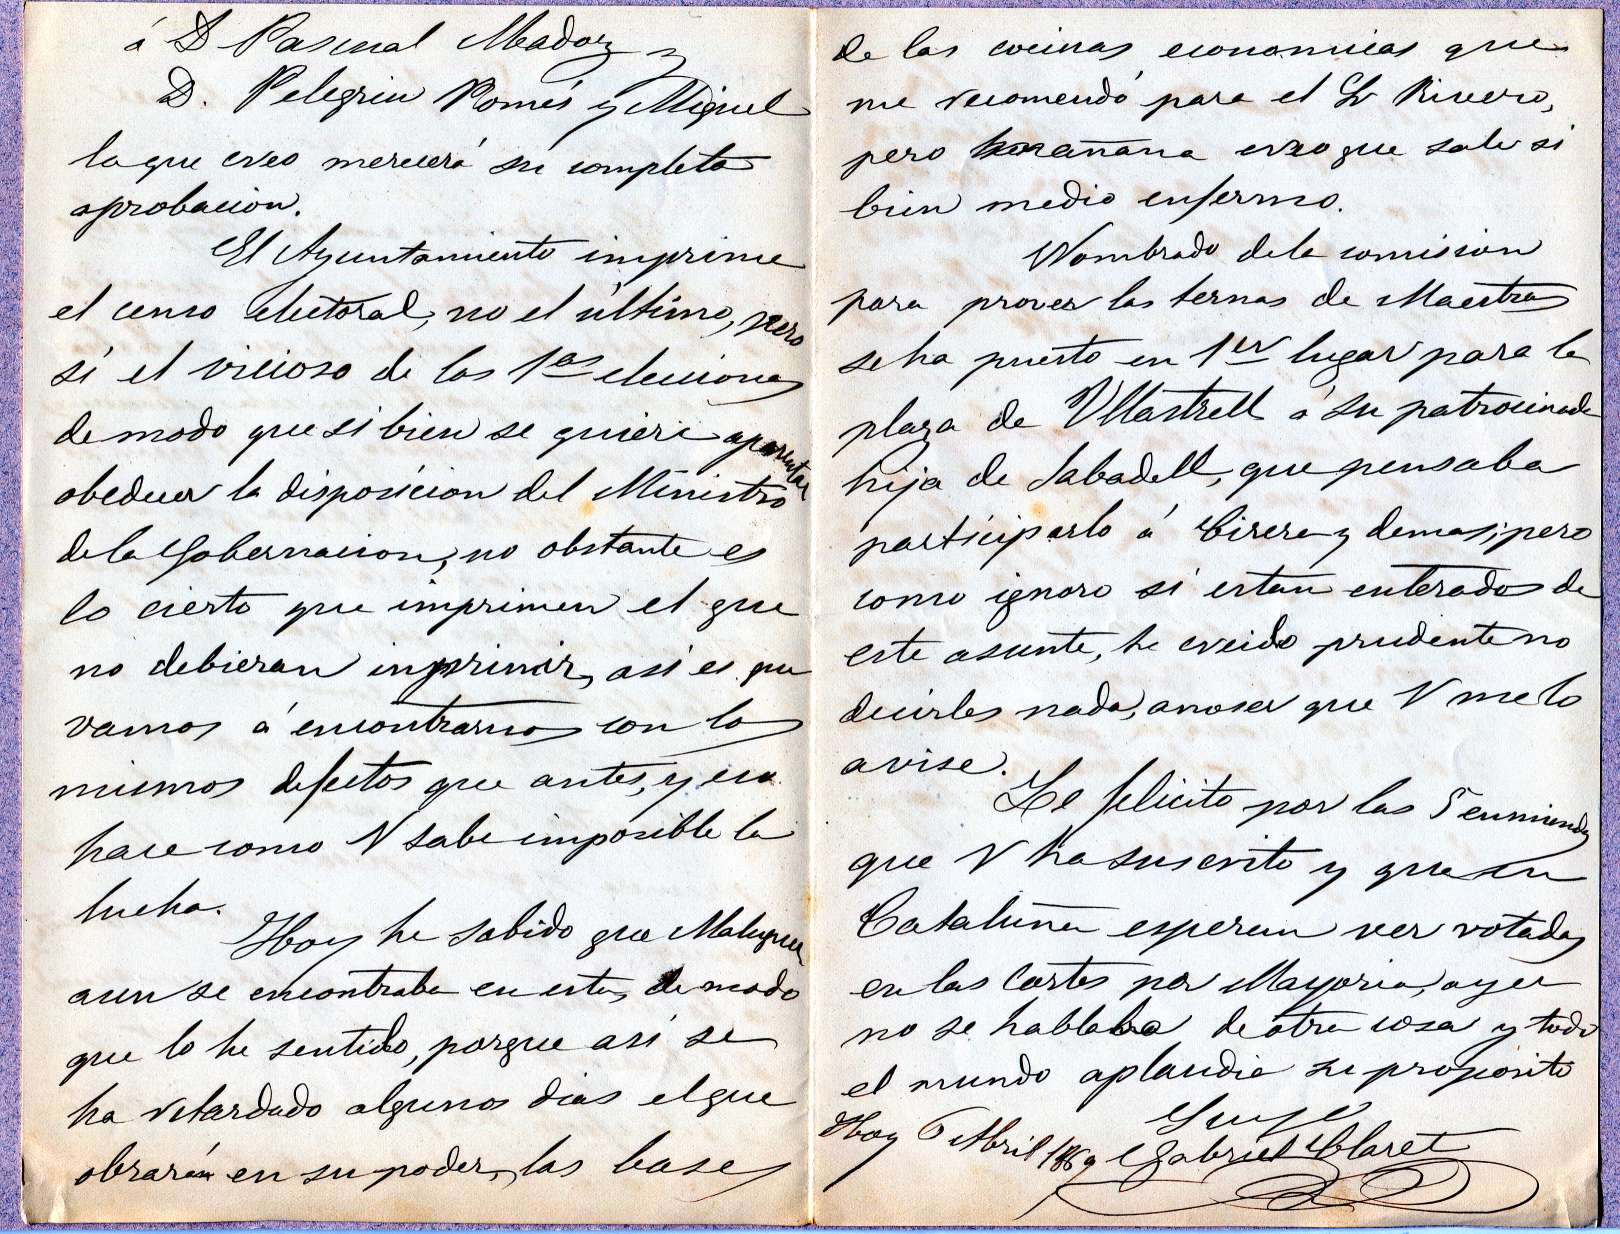 á D Pascual Madoz y
D. Pelegrin Pomés y Miquel
la que creo merecerá su completa
aprobacion.
El Ayuntamiento imprime
el censo electoral, no el último, pero
si el vicioso de las 1as elecciones
de modo que si bien se quiere aparentar
obedecer la disposicion del Ministro
de la Gobernacion, no obstante es
lo cierto que imprimen el que
no debieran imprimir, asi es que
vamos á encontrarnos con los
mismos defectos que antes, y eso
hace como V sabe imposible la
lucha.
Hoy he sabido que Maluquer
aun se encontraba en esta, de modo
que lo he sentido, porque asi se
ha retardado algunos dias el que
obrarán en su poder, las bases
de las cocinas economicas que
me recomendó para el Sr Rivero,
pero mañana creo que sale si
bien medio enfermo.
Nombrado de la comision
para proveer las ternas de Maestras
se ha puesto en 1er lugar para la
plaza de Ullastrell á su patrocinada
hija de Sabadell, que pensaba
participarlo á Cirera y demas; pero
como ignoro si estan enterados de
este asunto, he creido prudente no
decirles nada, a no ser que V me lo
avise.
Le felicito por las 5 enmiendas
que V ha suscrito y que en
Cataluña esperan ver votadas
en las Cortes por Mayoria, ayer
no se hablaba de otra cosa y todo
el mundo aplaudia su proposito
Suyo
Hoy 6 Abril 1869 Gabriel Claret